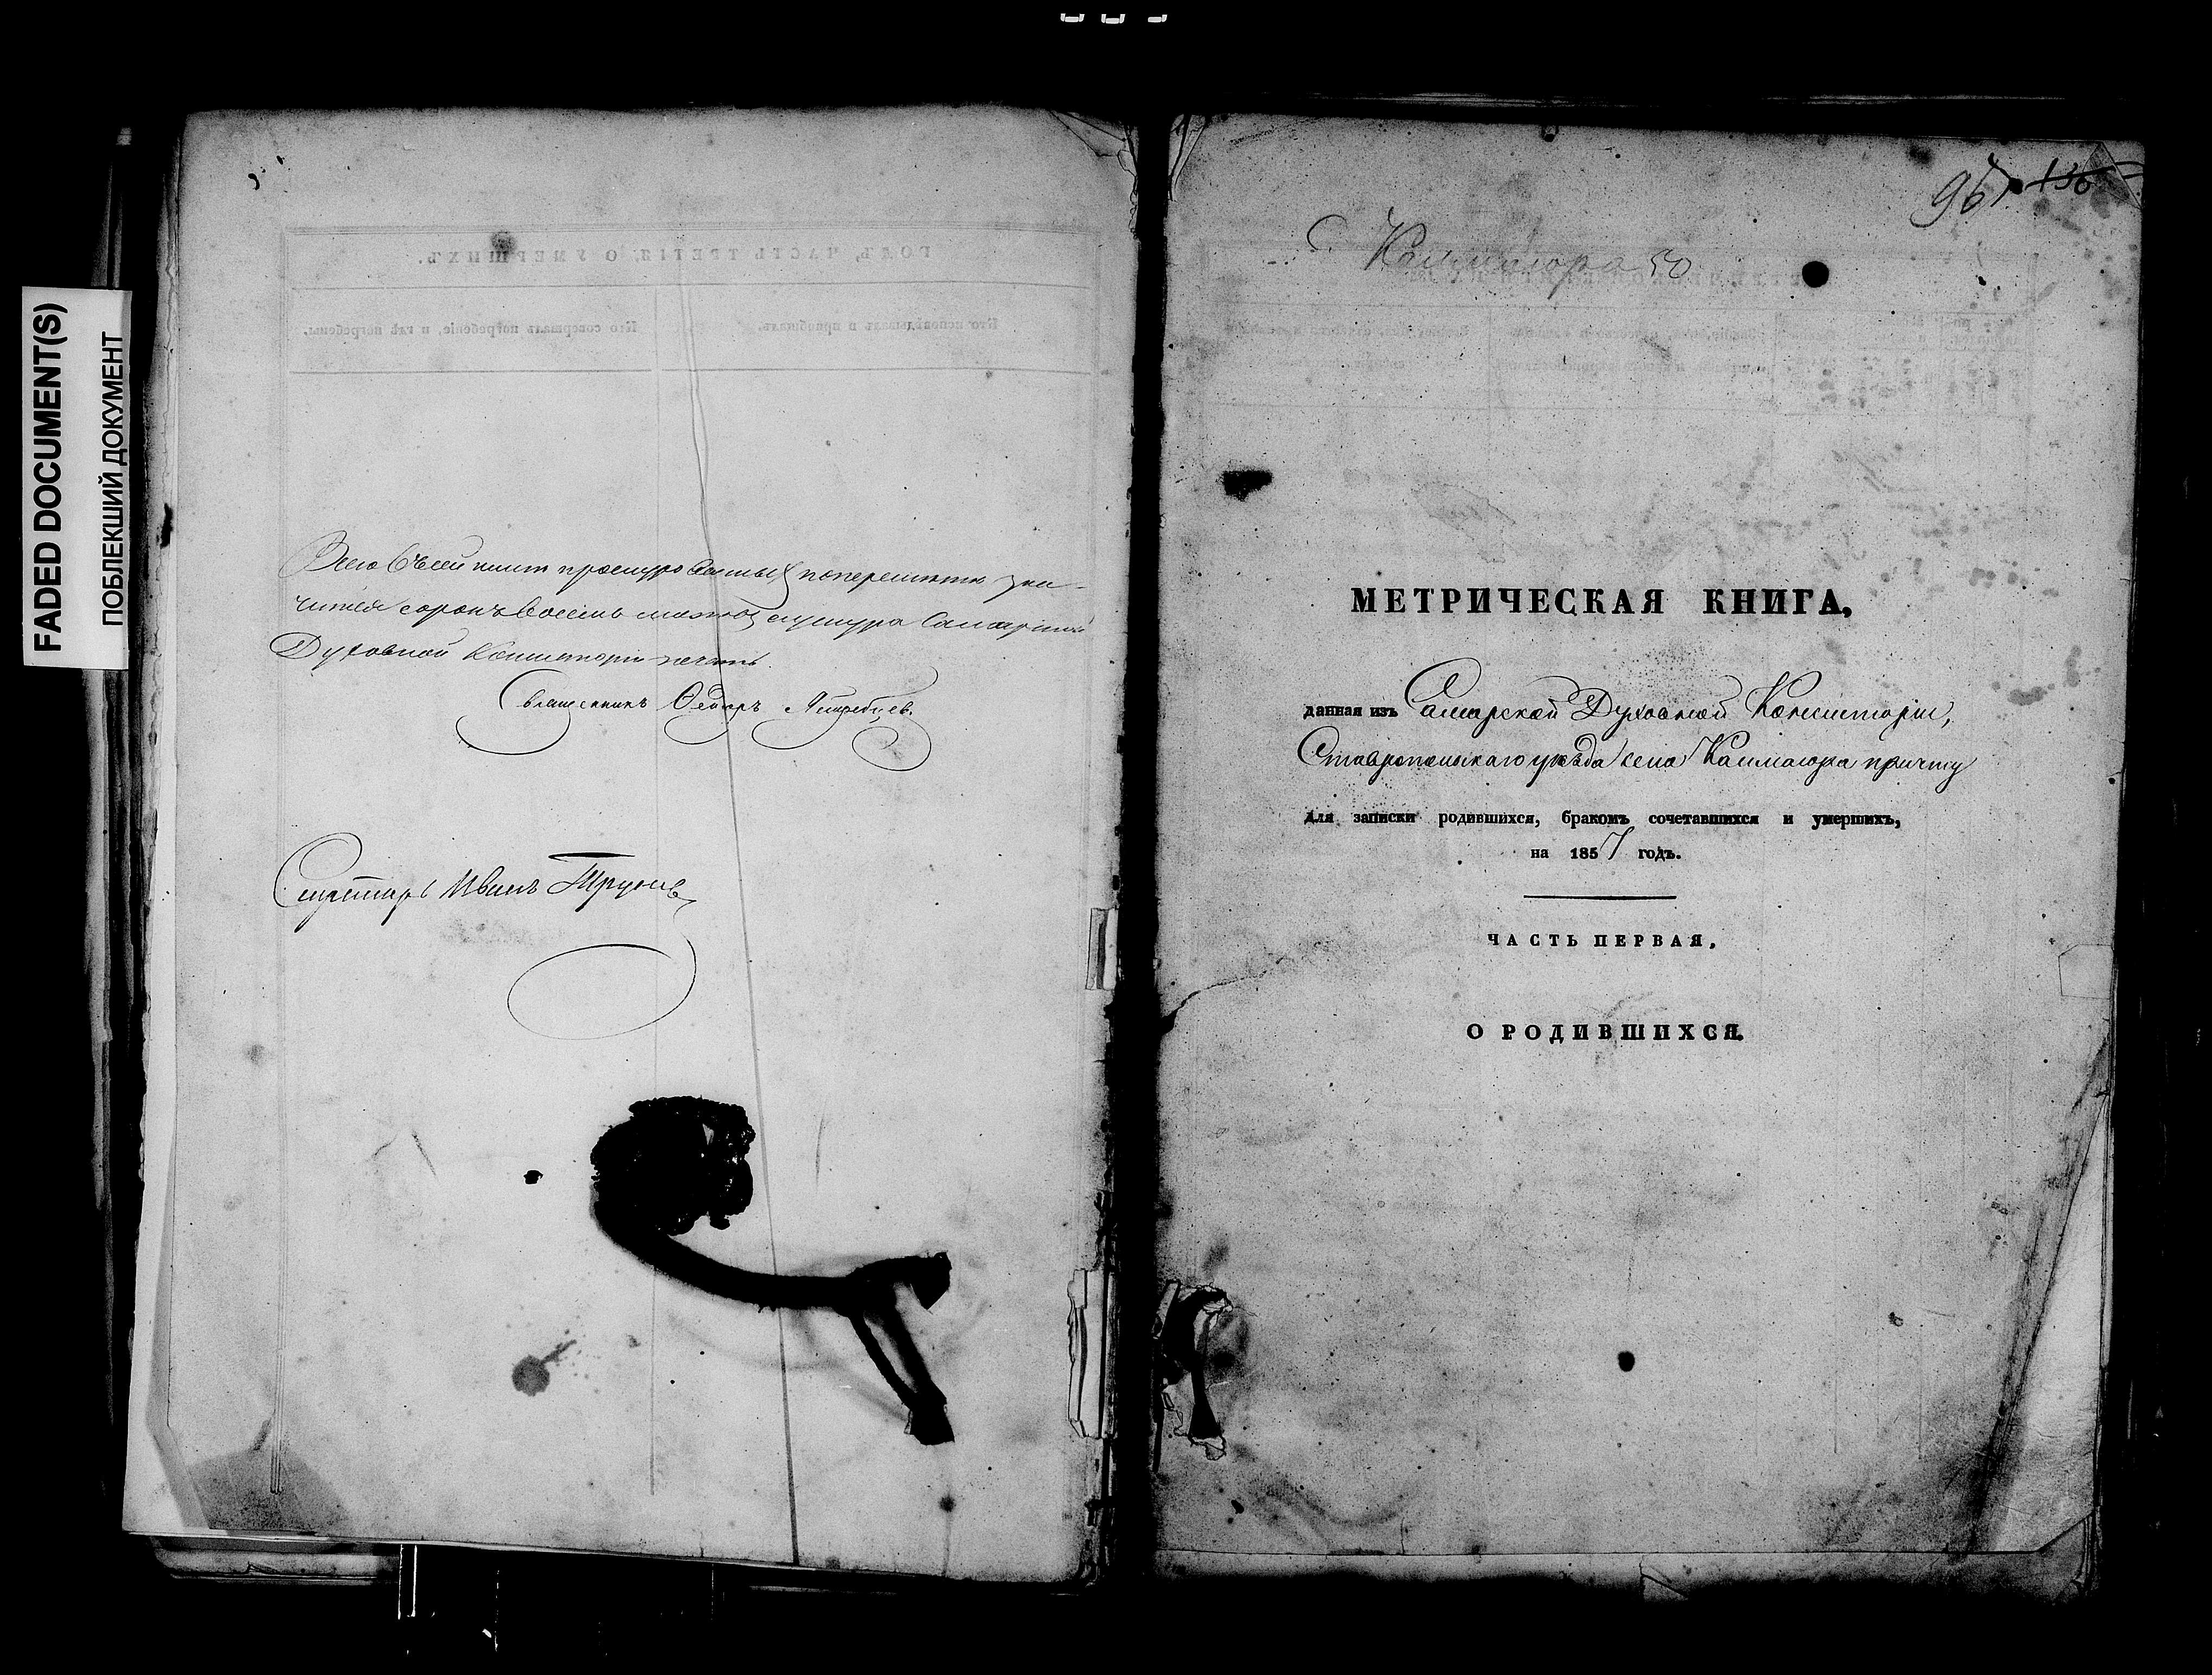 FADED DOCUMENT(S)
ПОБЛЕКШИЙ ДОКУМЕНТ
ГОДЪ, ЧАСТЬ ТРЕТІЯ, О УМЕРШИХЪ.
Кто исповѣдывалъ и пріобщалъ.
Кто совершалъ погребеніе, и гдѣ погребены.
Всего въ сей книгѣ прошнурованныхъ по перемѣткѣ зна-
чится сорокъ восемь листовъ, у шнура Самарской
Духовной Консисторіи печать.
Священникъ Ѳедоръ
Секретарь Иванъ Труновъ
957 136
С. Калмаюра 50
МЕТРИЧЕСКАЯ КНИГА,
данная изъ Самарской Духовной Консисторіи,
Ставропольскаго уѣзда села Калмаюра причту
для записки родившихся, бракомъ сочетавшихся и умершихъ,
на 1857 годъ.
ЧАСТЬ ПЕРВАЯ.
О РОДИВШИХСЯ.